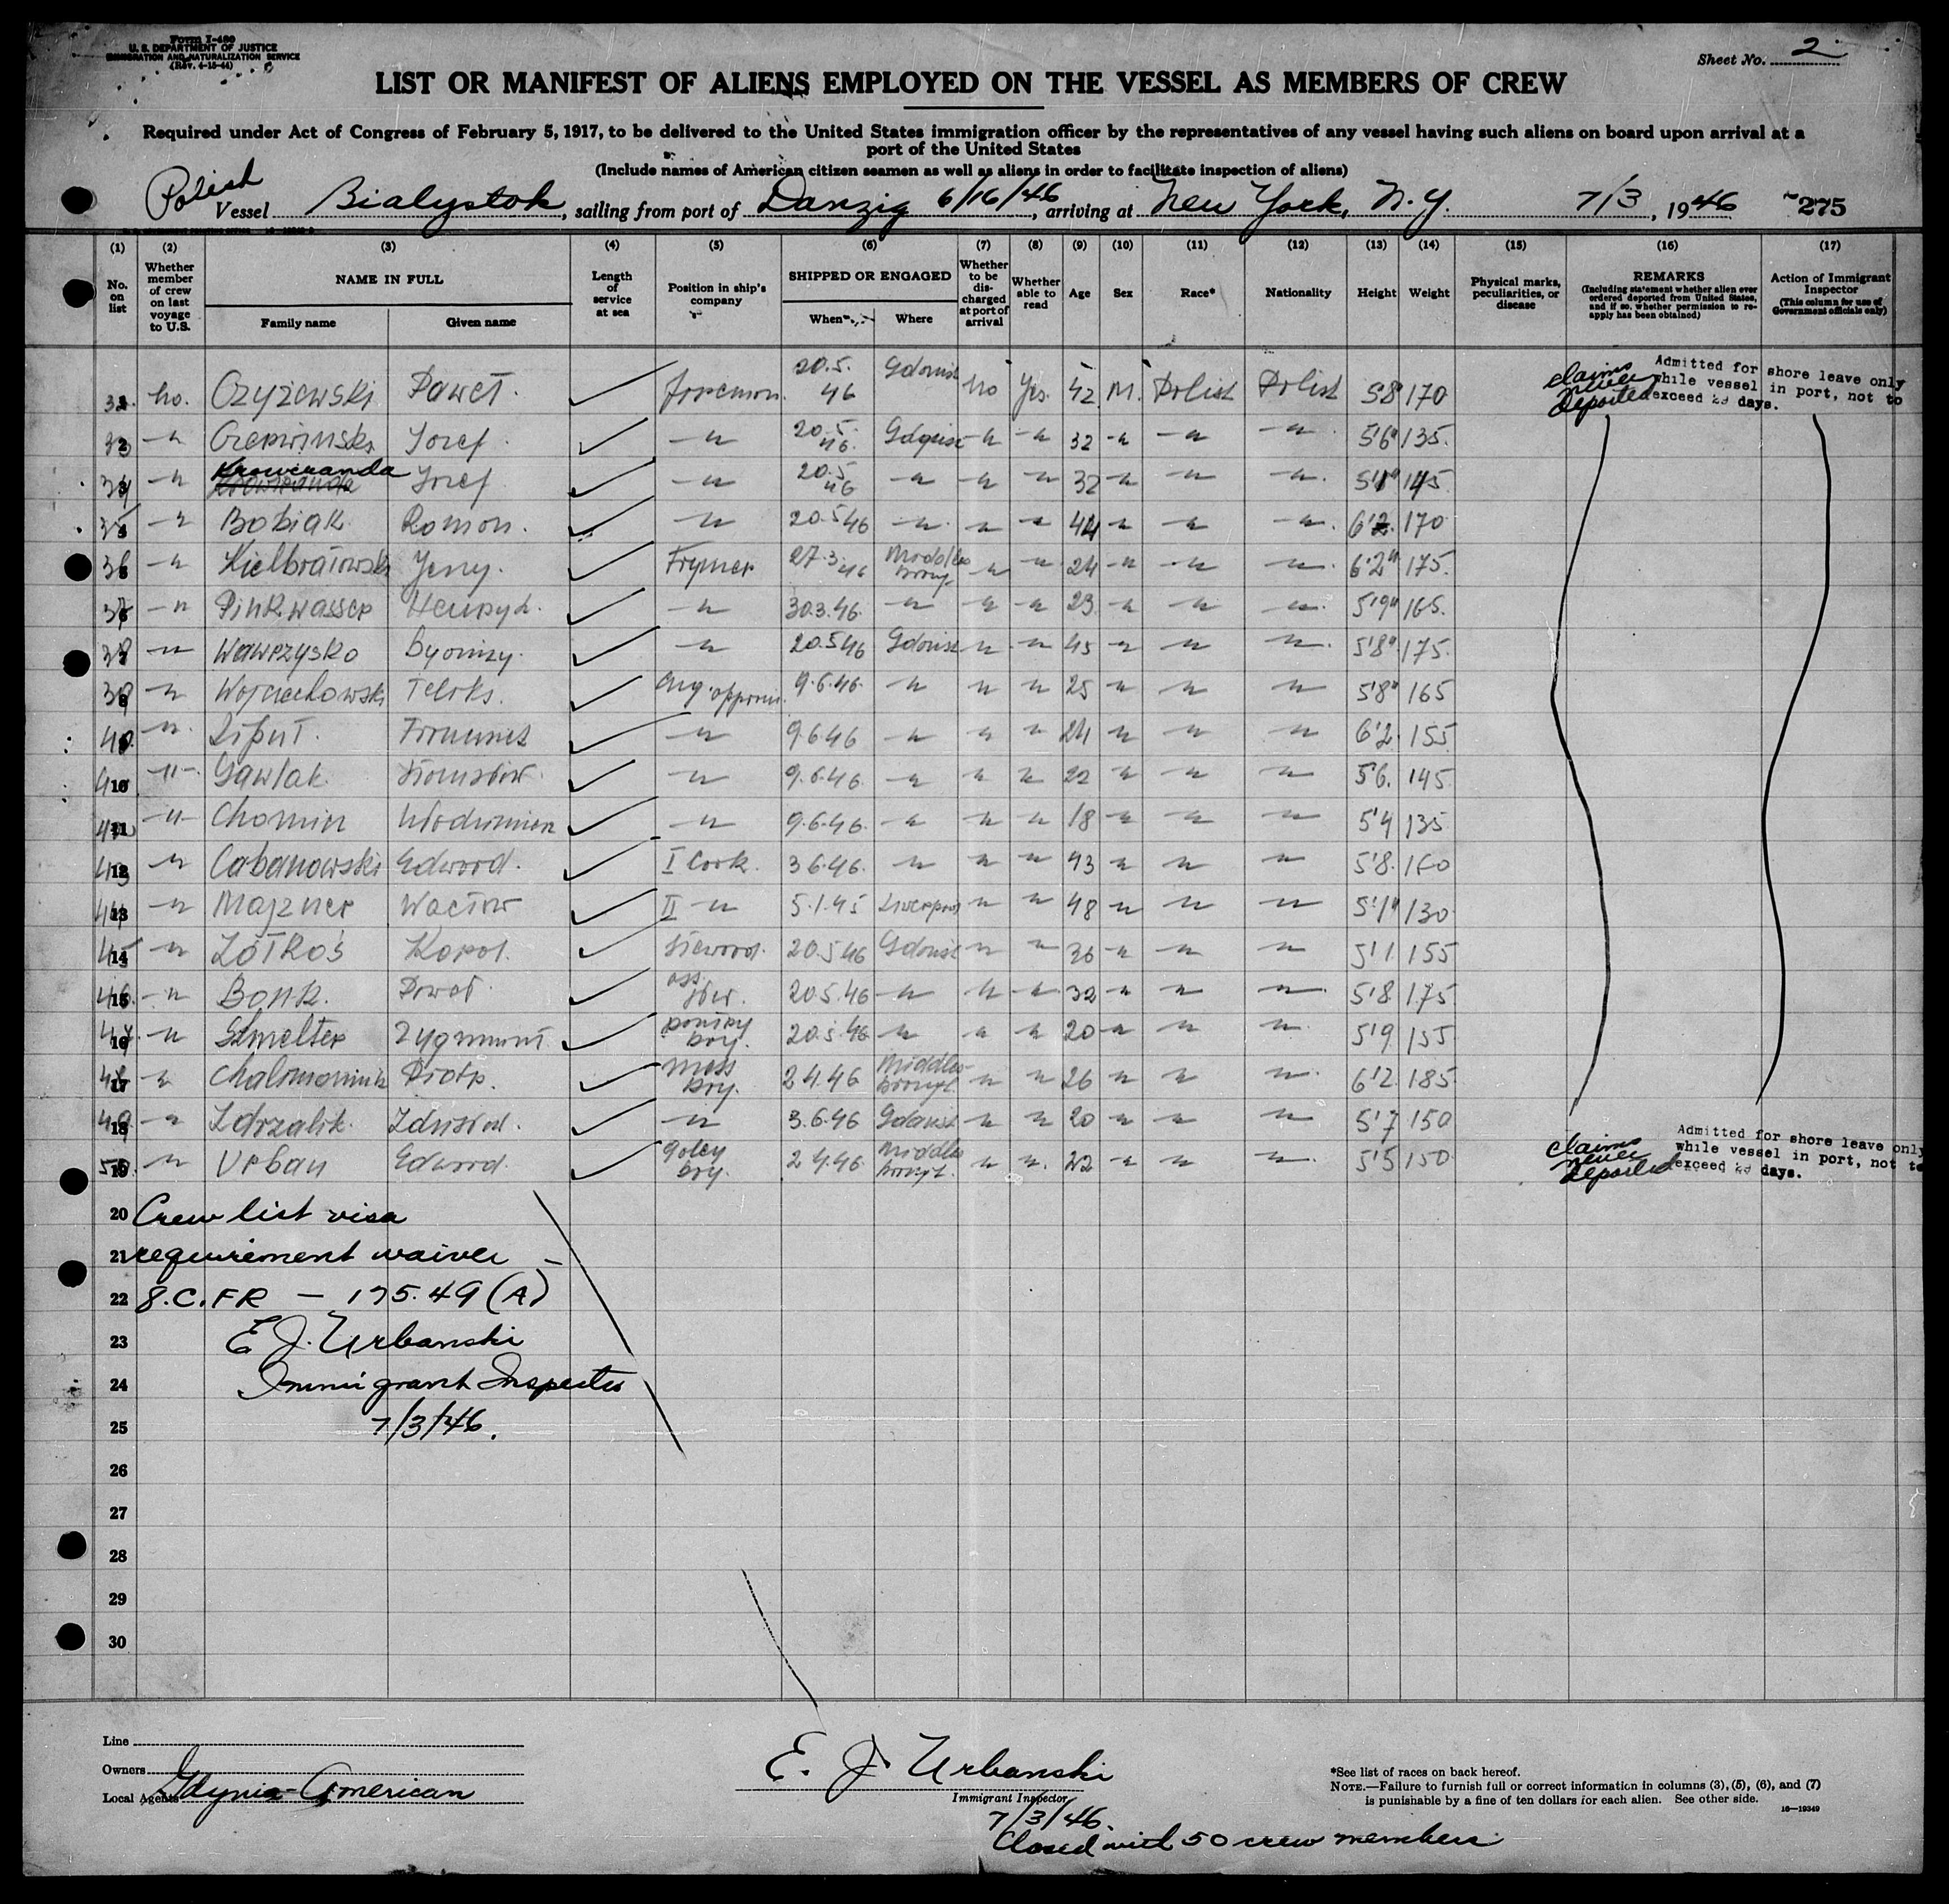 Form I-480
U. S. DEPARTMENT OF JUSTICE
IMMIGRATION AND NATURALIZATION SERVICE
(Rev. 4-15-44)
Sheet No. 2
LIST OR MANIFEST OF ALIENS EMPLOYED ON THE VESSEL AS MEMBERS OF CREW
Required under Act of Congress of February 5, 1917, to be delivered to the United States immigration officer by the representatives of any vessel having such aliens on board upon arrival at a
port of the United States
(Include names of American citizen seamen as well as aliens in order to facilitate inspection of aliens)
Polish
Vessel Bialystok, sailing from port of Danzig 6/16/46, arriving at New York, N.Y. 7/3, 1946 275
(1) (2) (3) (4) (5) (6) (7) (8) (9) (10) (11) (12) (13) (14) (15) (16) (17)
No. on list
Whether member of crew on last voyage to U.S.
NAME IN FULL
Family name
Given name
Length of service at sea
Position in ship's company
SHIPPED OR ENGAGED
When
Where
Whether to be discharged at port of arrival
Whether able to read
Age
Sex
Race*
Nationality
Height
Weight
Physical marks, peculiarities, or disease
REMARKS
(Including statement whether alien ever ordered deported from United States, and if so, whether permission to reapply has been obtained)
Action of Immigrant Inspector
(This column for use of Government officials only)
No. Czyżewski Paweł. 20.5.46 Gdańsk No Yes. 42 M. Polish Polish 5'8" 170
claims never deported
Admitted for shore leave only
while vessel in port, not to
exceed 29 days.
33 -"- Józef. -"- 20.5.46 Gdańsk -"- -"- 32 -"- -"- -"- 5'6" 135.
34 -"- Krowiranda Józef -"- 20.5.46 -"- -"- -"- 32 -"- -"- -"- 145
35 -"- Bobiak Roman. -"- 20.5.46 -"- -"- -"- 44 -"- -"- -"- 6'2. 170
36 -"- Jerzy. 27.3.46 Middlesbrough -"- -"- 24 -"- -"- -"- 6'2" 175.
37 -"- Pinkwasser Henryk. -"- 30.3.46 -"- -"- -"- 23 -"- -"- -"- 5'9" 165.
38 -"- Wawrzysko -"- 20.5.46 Gdańsk -"- -"- 45 -"- -"- -"- 5'8" 175.
39 -"- Wojciechowski Feliks. 9.6.46. -"- -"- -"- 25 -"- -"- -"- 5'8" 165
40 -"- -"- 9.6.46 -"- -"- -"- 24 -"- -"- -"- 6'2. 155
-"- Gawlak -"- 9.6.46. -"- -"- -"- 22 -"- -"- -"- 5'6. 145
-"- Chomin -"- 9.6.46. -"- -"- -"- 18 -"- -"- -"- 5'4 135
43 -"- Cabanowski Edward. I Cook. 3.6.46. -"- -"- -"- 43 -"- -"- -"- 5'8. 160
44 -"- Majzner Wacław II -"- 5.1.45 Liverpool -"- -"- 48 -"- -"- -"- 5'1" 130
45 -"- Karol. Steward. 20.5.46 Gdańsk -"- -"- 36 -"- -"- -"- 5'1. 155
46. -"- Bonk. Paweł ass. stew. 20.5.46 -"- -"- -"- 32 -"- -"- -"- 5'8 175
47. -"- Szmelter Zygmunt. pantry boy. 20.5.46 -"- -"- -"- 20 -"- -"- -"- 5'9 155
48 -"- Piotr. mess boy. 2.4.46 Middlesbrough. -"- -"- 26 -"- -"- -"- 6'2. 185
49. -"- Zdrzalik. Zdzisław. -"- 3.6.46 Gdańsk -"- -"- 20 -"- -"- -"- 5'7 150
50. -"- Urban Edward. galey boy. 2.4.46 Middlesbrough. -"- -"- 22 -"- -"- -"- 5'5 150
claims never deported
Admitted for shore leave only
while vessel in port, not to
exceed 29 days.
20 Crew list visa
21 requirement waiver -
22 8.C.FR - 175.49 (A)
23 E J. Urbanski
24 Immigrant Inspector
25 7/3/46.
26
27
28
29
30
Line
Owners
Local Agents Gdynia-American
E. J. Urbanski
Immigrant Inspector
7/3/46.
Closed with 50 crew members
*See list of races on back hereof.
NOTE.—Failure to furnish full or correct information in columns (3), (5), (6), and (7)
is punishable by a fine of ten dollars for each alien. See other side.
16—19349